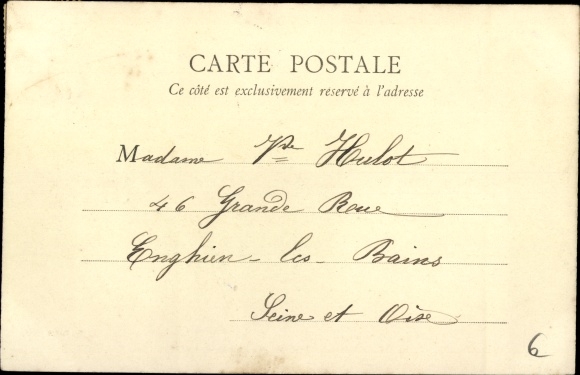 CARTE POSTALE
Ce côté est exclusivement reservé à l'adresse
Madame Vve Hulot
46 Grande Rue
Enghien-les-Bains
Seine et Oise
6